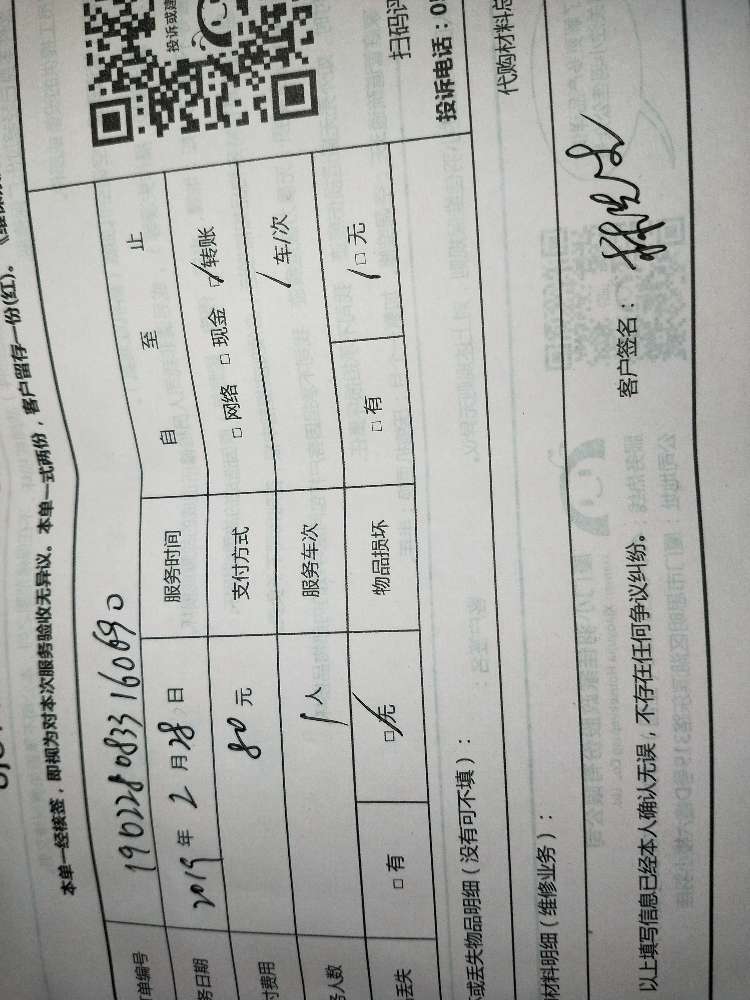 本单一经核签，即视为对本次服务验收无异议。本单一式两份，客户留存一份(红)。
单编号 1902280833160690
务日期 2019年2月28日 服务时间 自 至 止
付费用 80元 支付方式 □网络 □现金 □转账
务人数 1人 服务车次 1车/次
丢失 □有 □无 物品损坏 □有 □无
或丢失物品明细（没有可不填）：
材料明细（维修业务）：
以上填写信息已经本人确认无误，不存在任何争议纠纷。
客户签名：
投诉或建
扫码评
投诉电话：0
代购材料总